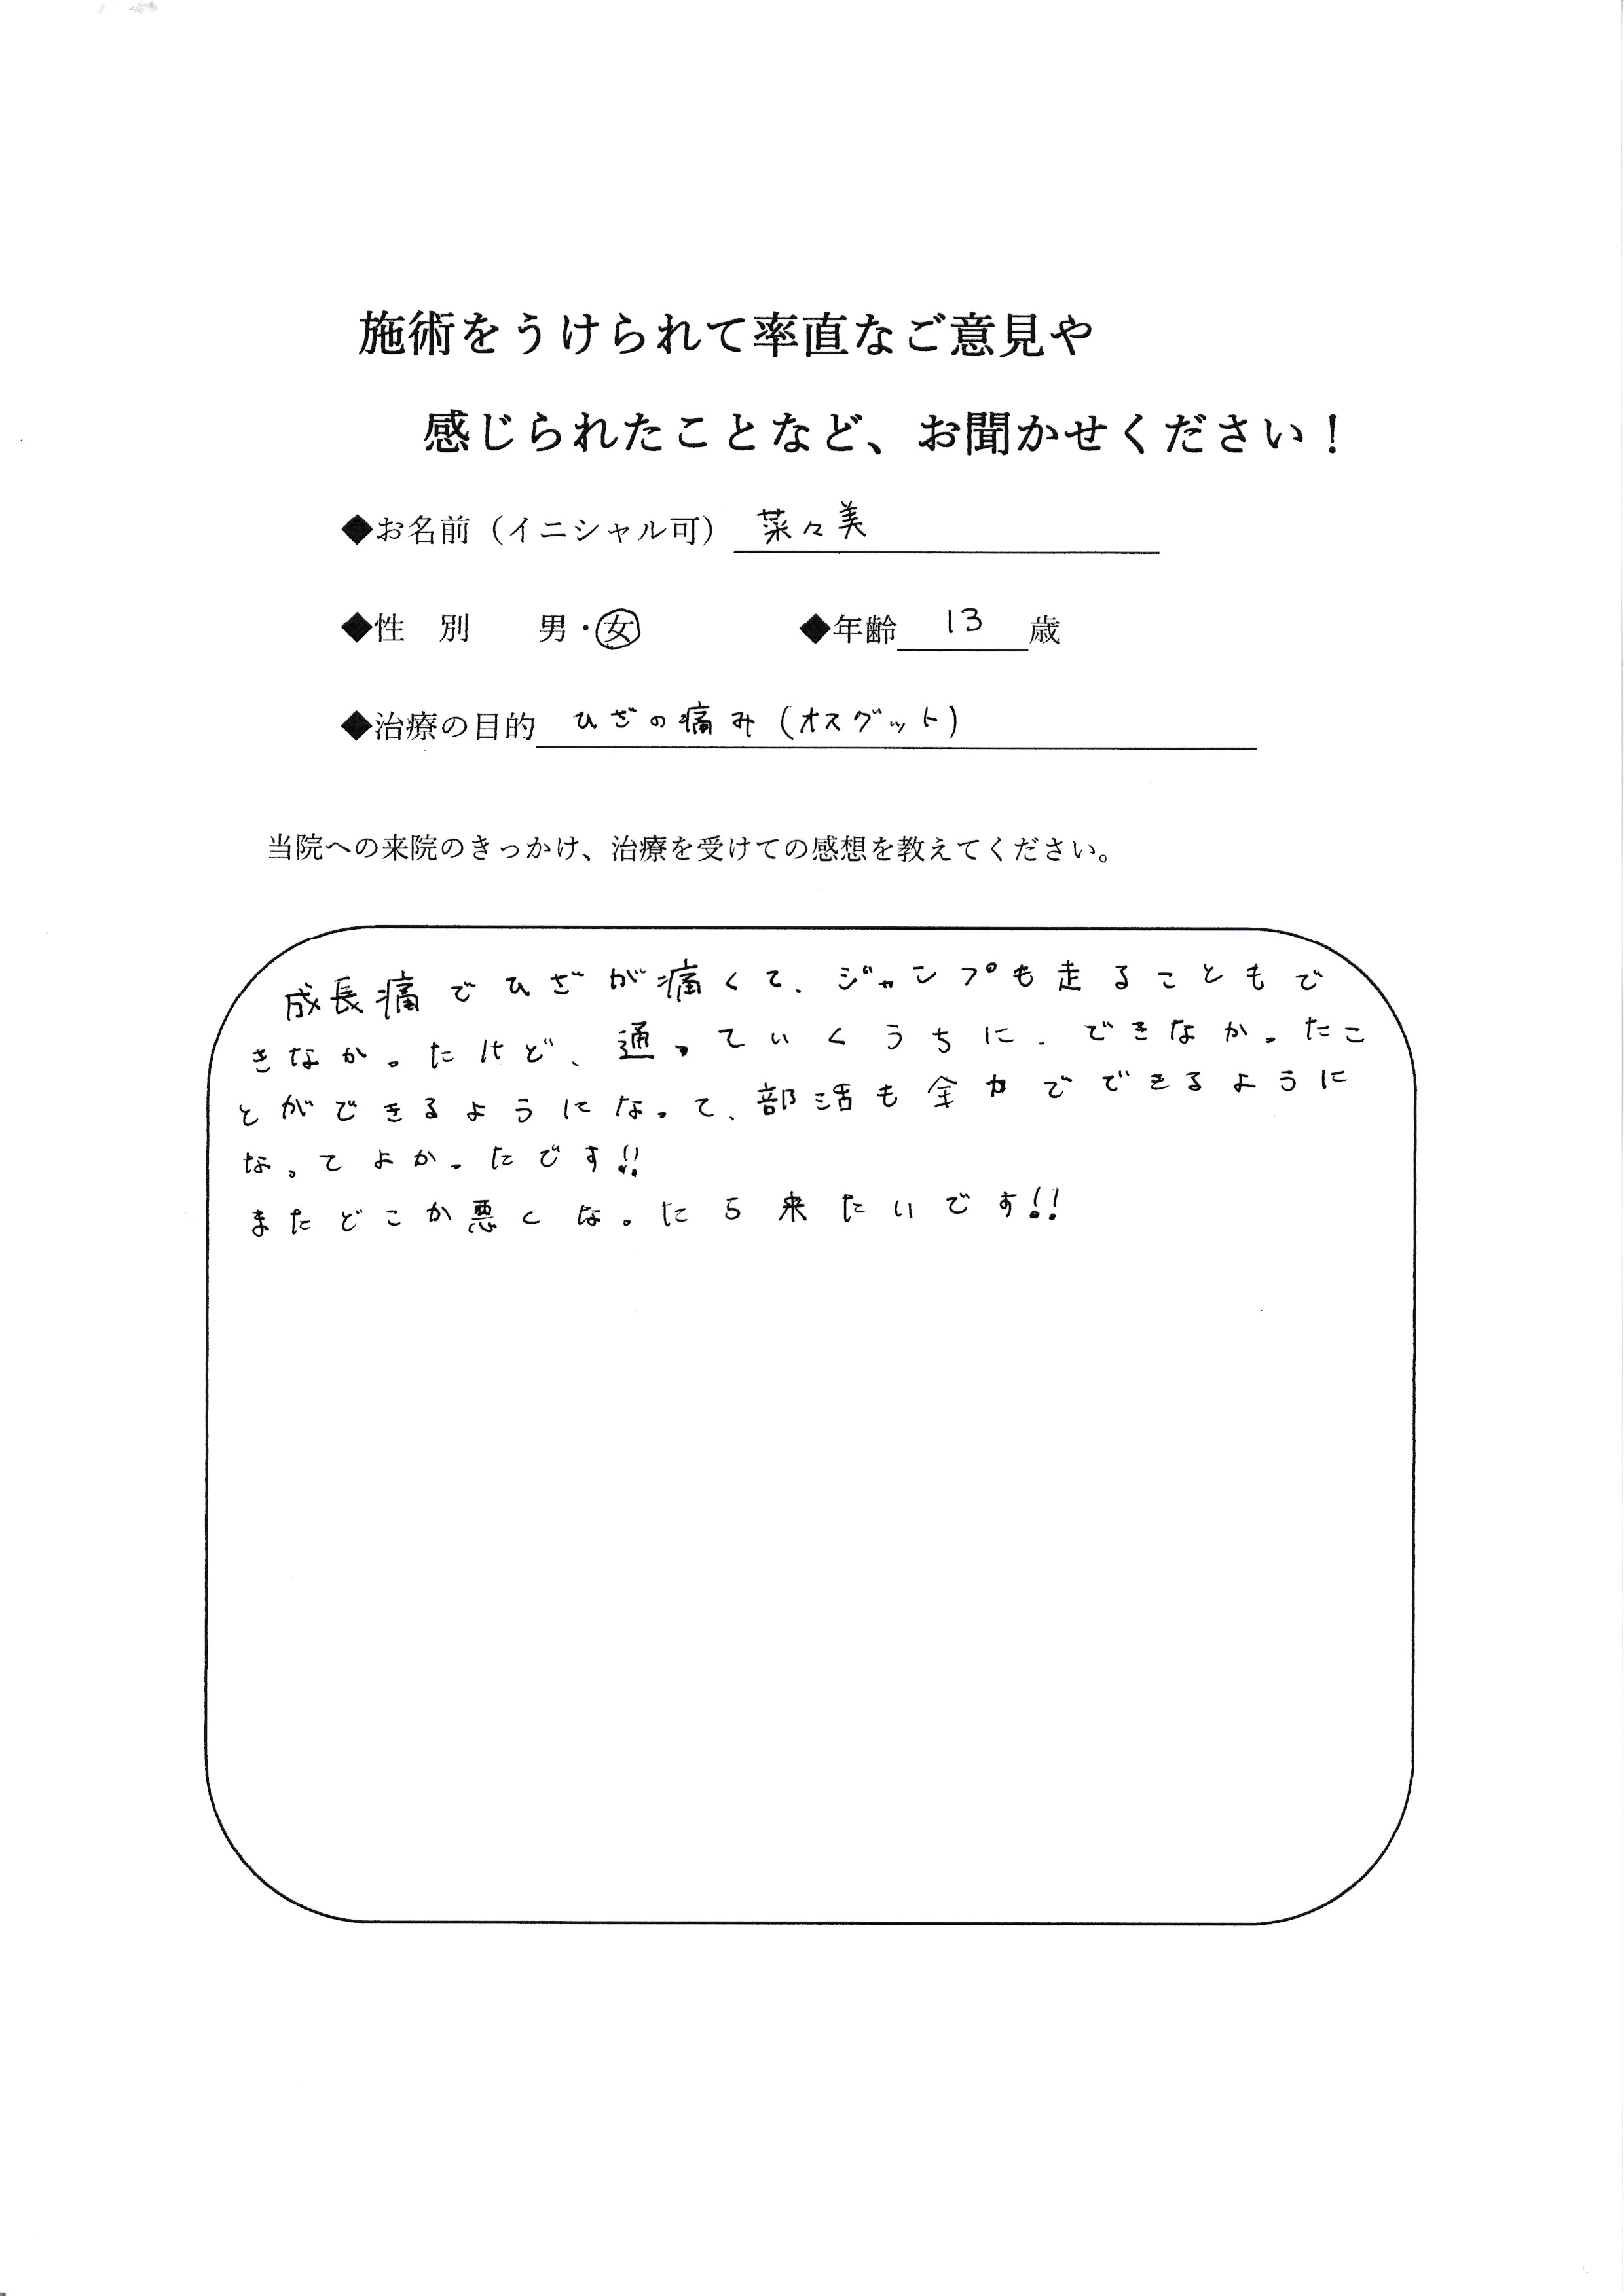 施術をうけられて率直なご意見や
感じられたことなど、お聞かせください！
◆お名前（イニシャル可） 菜々美
◆性　別　　男・女　　◆年齢 13 歳
◆治療の目的 ひざの痛み(オスグット)
当院への来院のきっかけ、治療を受けての感想を教えてください。
成長痛でひざが痛くて、ジャンプも走ることもで
きなかったけど、通っていくうちに、できなかったこ
とができるようになって、部活も全力でできるように
なってよかったです!!
またどこか悪くなったら来たいです!!